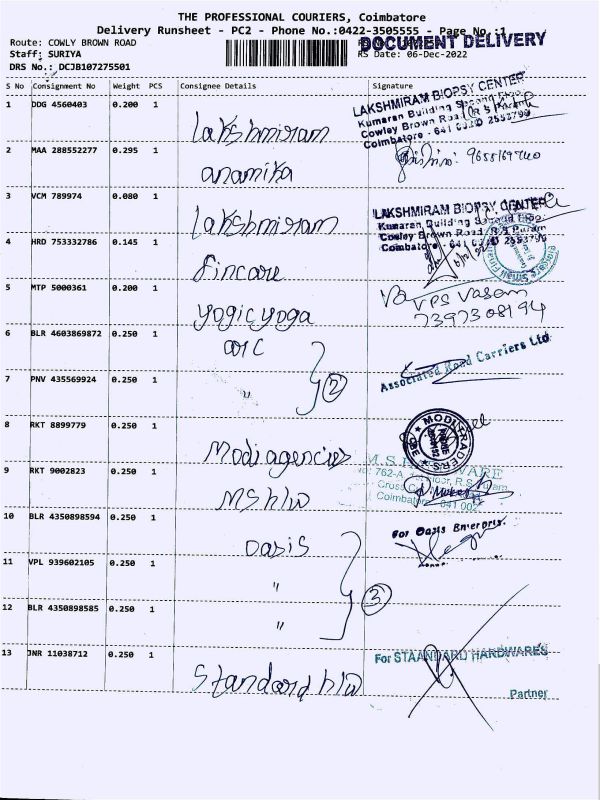 THE PROFESSIONAL COURIERS, Coimbatore
Delivery Runsheet - PC2 - Phone No.:0422-3505555 - Page No.:1
DOCUMENT DELIVERY
Route: COWLY BROWN ROAD
Staff: SURIYA
RS Date: 06-Dec-2022
DRS No.: DCJB107275501
S No Consignment No Weight PCS Consignee Details Signature
1 DDG 4560403 0.200 1 Lakshmiram
LAKSHMIRAM BIOPSY CENTER
Kumaran Building Second Floor
Cowley Brown Road, R S Puram
Coimbatore - 641 002 2553799
2 MAA 288552277 0.295 1 anamika
3 VCM 789974 0.080 1 Lakshmiram
LAKSHMIRAM BIOPSY CENTER
Kumaran Building Second Floor
Cowley Brown Road, R S Puram
Coimbatore 641 002 2553799
4 HRD 753332786 0.145 1 fincare
5 MTP 5000361 0.200 1 yogicyoga
VPS Vasam
7397308194
6 BLR 4603869872 0.250 1 arc
Associated Road Carriers Ltd
7 PNV 435569924 0.250 1 " 2
8 RKT 8899779 0.250 1 Modi agencies
MODI TRADERS
9 RKT 9002823 0.250 1 MS h/w
762-A, R.S. Puram
Coimbatore - 641 002
10 BLR 4350898594 0.250 1 oasis
For Oasis Enterpris.
11 VPL 939602105 0.250 1 " 3
12 BLR 4350898585 0.250 1 "
13 JNR 11038712 0.250 1 Standard h/w
For STAANDARD HARDWARES
Partner